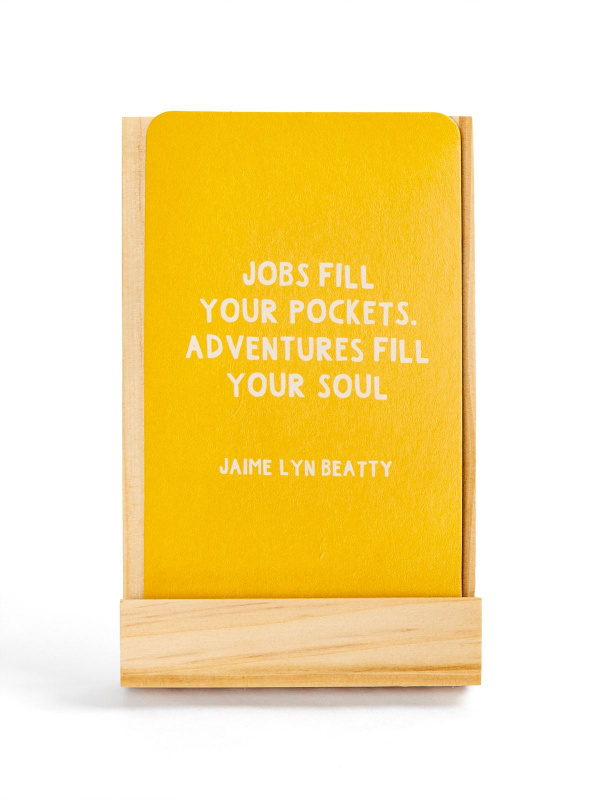 JOBS FILL
YOUR POCKETS.
ADVENTURES FILL
YOUR SOUL
JAIME LYN BEATTY